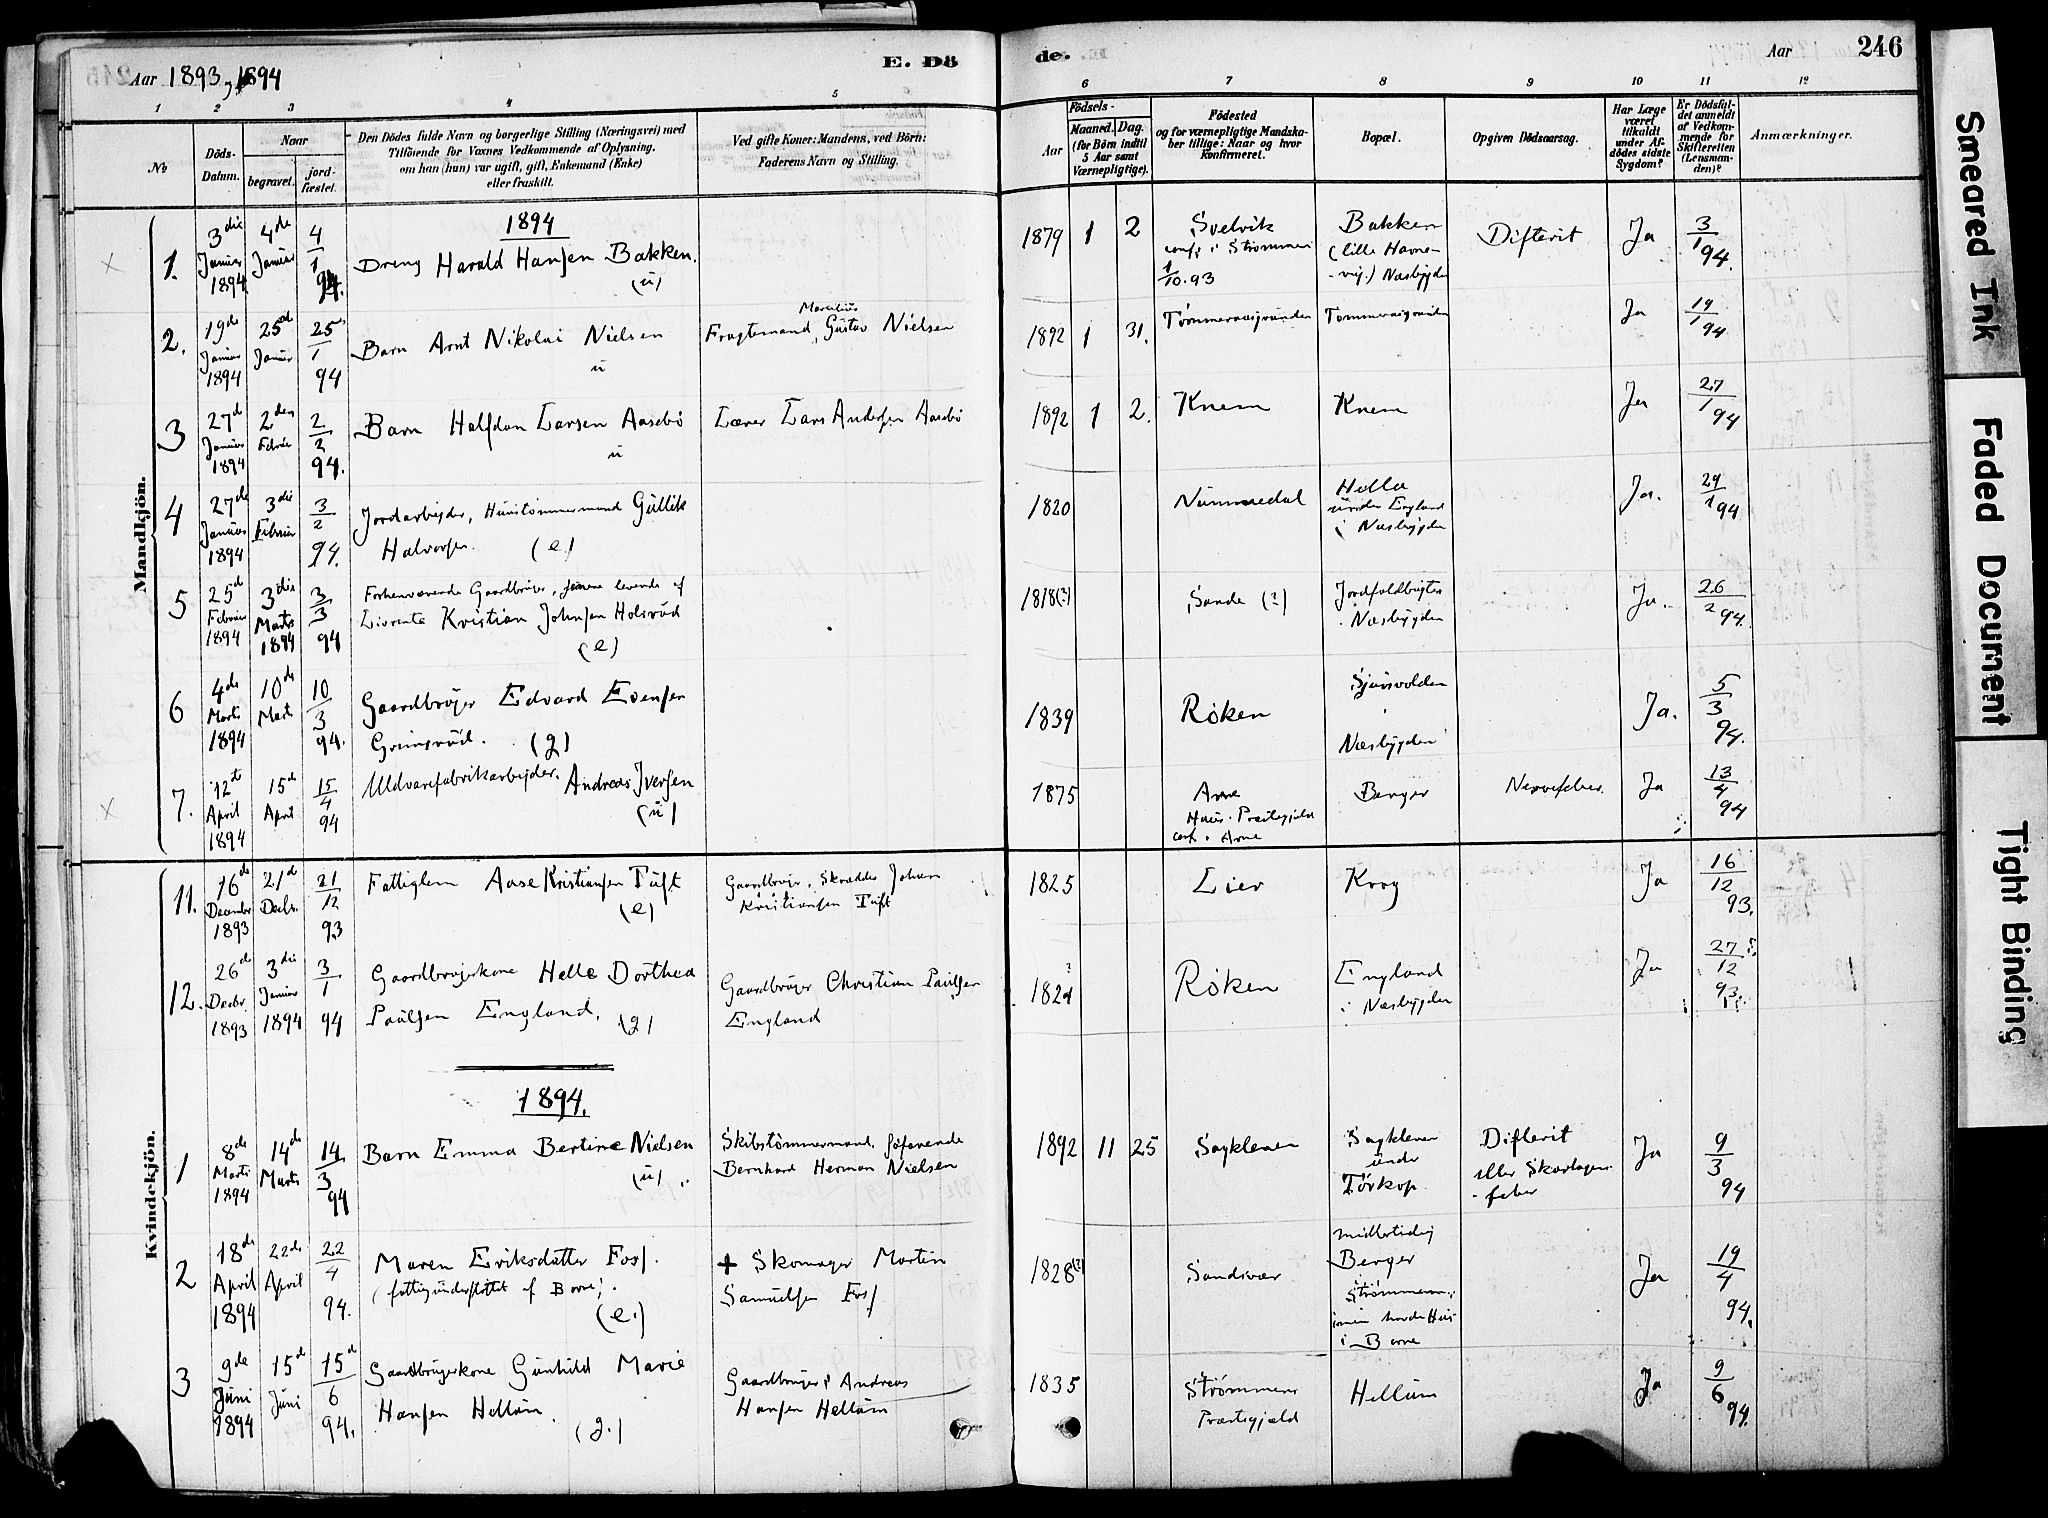 Aar 1893, 1894
E. Dö
de.
Aar
246
1 2 3 4 5 6 7 8 9 10 11 12
No
Döds-Datum.
Naar
begravet.
jordfæstet.
Den Dödes fulde Navn og borgerlige Stilling (Næringsvei) med
Tilföiende for Voxnes Vedkommende af Oplysning,
om han (hun) var ugift, gift, Enkemand (Enke)
eller fraskilt.
Ved gifte Koner: Mandens, ved Börn:
Faderens Navn og Stilling.
Födsels-
Aar
Maaned. Dag.
(for Börn indtil
5 Aar samt
Værnepligtige).
Födested
og for værnepligtige Mandskaber tillige: Naar og hvor
Konfirmeret.
Bopæl.
Opgiven Dödsaarsag.
Har Læge
været
tilkaldt
under Afdödes sidste
Sygdom?
Er Dödsfaldet anmeldt
af Vedkommende for
Skifteretten
(Lensmanden)?
Anmærkninger.
Mandkjön.
1894
1. 3die Januar 1894 4de Januar 4/1 94. Dreng Harald Hansen Bakken. (u) 1879 1 2 Svelvik conf. i Strømmen 1/10.93 Bakken (lille Havnevig.) Næsbygden Difterit Ja 3/1 94.
2. 19de Januar 1894 25de Januar 25/1 94 Barn Arnt Nikolai Nielsen u Fragtemand, Marelius Gustav Nielsen 1892 1 31. Tømmeraasgrunden Tømmeraasgrunden Ja 19/1 94
3 27de Januar 1894 2den Februar 2/2 94. Barn Halfdan Larsen Aasebø u Lærer Lars Andersen Aasebø 1892 1 2. Knem Knem Ja 27/1 94
4 27de Januar 1894 3die Februar 3/2 94. Jordarbejder, Hustømmermand Gullik Halvorsen. (e.) 1820 Nummedal Hella under England i Næsbygden Ja. 29/1 94
5 25de Februar 1894 3die Marts 1894 3/3 94 Forhenværende Gaardbruger, levende af Livrente Kristian Johnsen Holsrud (e) 1818(?) Sande (?) i Næsbygden Ja. 26/2 94.
6 4de Marts 1894 10de Marts 10/3 94. Gaardbruger Edvard Evensen Grimsrud. (g) 1839 Røken Sjursvolden i Næsbygden Ja. 5/3 94.
7. 12te April 1894 15de April 15/4 94 Uldvarefabrikarbejder. Andreas Iversen (u) 1875 Arne Haus Præstegjeld conf. i Arne Berger Nervefeber. Ja 13/4 94
Kvindekjön.
11. 16de December 1893 21de Decbr. 21/12 93 Fattiglem Aase Kristiansen Tuft (e) Gaardbruger, Skrædder Johan Kristiansen Tuft 1825 Lier Krog Ja 16/12 93.
12. 26de Decbr. 1893 3die Januar 1894 3/1 94 Gaardbrugerkone Helle Dorthea Paulsen England. (g) Gaardbruger Christian Paulsen England 1824 ? Røken England i Næsbygden Ja 27/12 93.
1894.
1 8de Marts 1894 14de Marts 14/3 94 Barn Emma Bertine Nielsen (u) Skibstømmermand, søfarende Bernhard Herman Nielsen 1892 11 25 Sagkleven Sagkleven under Tørkop Difterit eller Skarlagensfeber Ja 9/3 94
2 18de April 1894 22de April 22/4 94. Maren Eriksdatter Foss. (fattigunderstøttet af Borre). (e.) + Skomager Martin Samuelsen Foss 1828(?) Sandsvær midlertidig Berger Strømmen, men havde Hus i Borre Ja 19/4 94.
3 9de Juni 1894 15de Juni 15/6 94. Gaardbrugerkone Gunhild Marie Hansen Hellum. (g.) Gaardbruger Andreas Hansen Hellum 1835 Strømmens Præstegjeld Hellum Ja 9/6 94.
Smeared Ink
Faded Document
Tight Binding